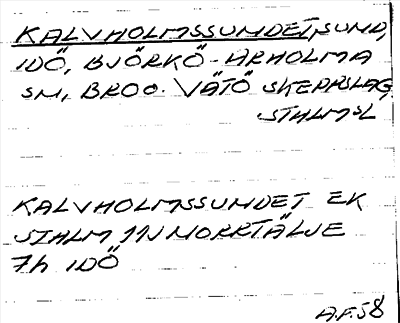 KALVHOLMSSUNDET, SUND,
IDÖ, BJÖRKÖ-ARHOLMA
SN, BRO O. VÄTÖ SKEPPSLAG,
STHLMSL
KALVHOLMSSUNDET EK
STHLM 11J NORRTÄLJE
7h IDÖ
A.F. 58